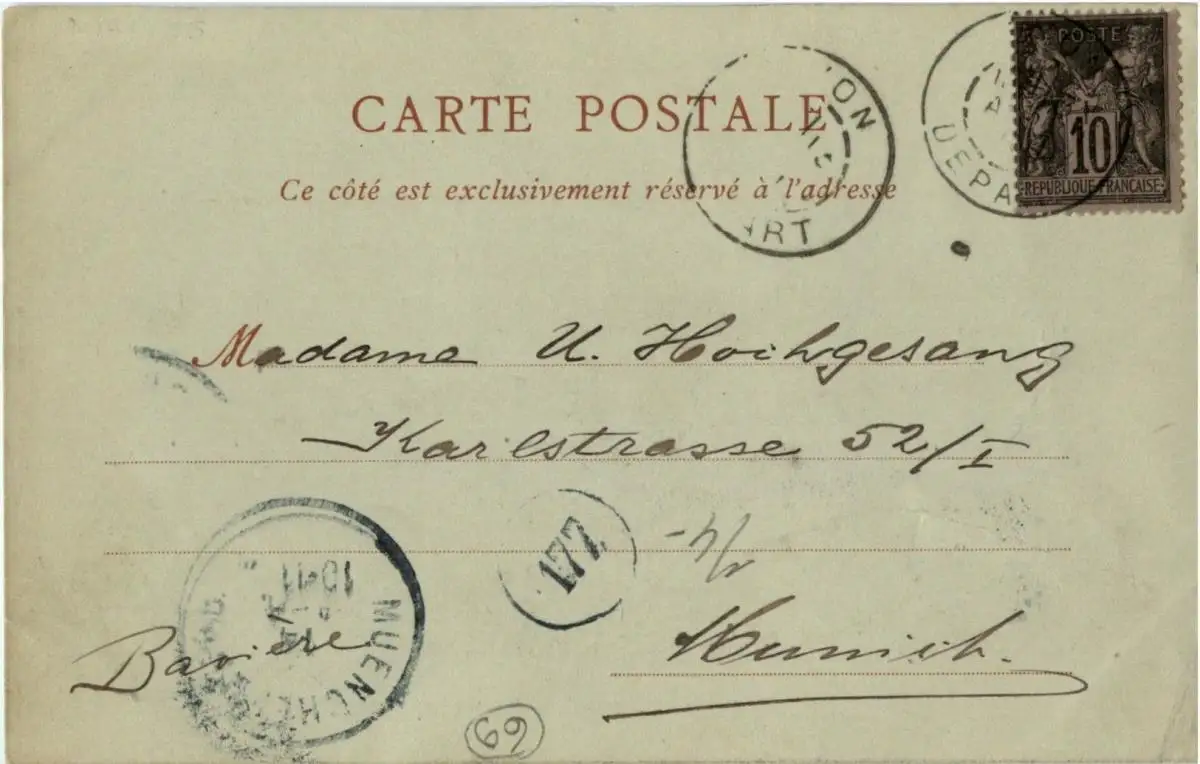 CARTE POSTALE
Ce côté est exclusivement réservé à l'adresse
POSTE
10
REPUBLIQUE FRANÇAISE
DEPA
ION
ART
Madame U. Hochgesang
Karlstrasse 52/I
177
10-11
MUENCHE
Bavière
Munich.
69